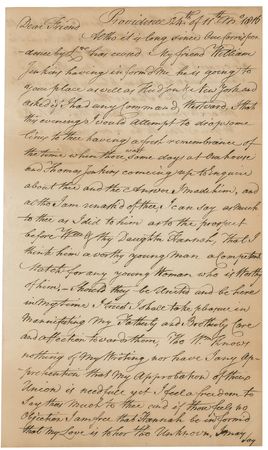 Providence 24th of 11th Mo 1816
Dear Friend
Altho it is long since Our Correspon
dence by has ceased. My friend William
Jenkins having informed me he is going to
your place as well as Hudson & New York and
asked if I had any Command, Westward, I that
this evening I would attempt to drop some
lines to thee having a fresh remembrance of
the time when thou was some days at Our house
and Thomas Jenkins coming up to inquire
about thee and the Answer I made him, and
altho I am unask'd of thee I can say as much
to thee as I did to him as to the prospect
before Wm & thy Daughter Hannah, that I
think him a worthy young man a Competent
Match for any young Woman who is Worthy
of him, should they be United and be here
in my time I trust I shall take pleasure in
Manifesting My Fatherly and Brotherly Care
and affection towards them, Tho Wm Knows
nothing of My Writing nor have I any Ap-
prehension that My Approbation of their
Union is needful yet I feel a freedom to
Say this much to thee and if thou feels no
Objection I am free that Hannah be informd
that My Love is to her tho Unknown, I may
Say